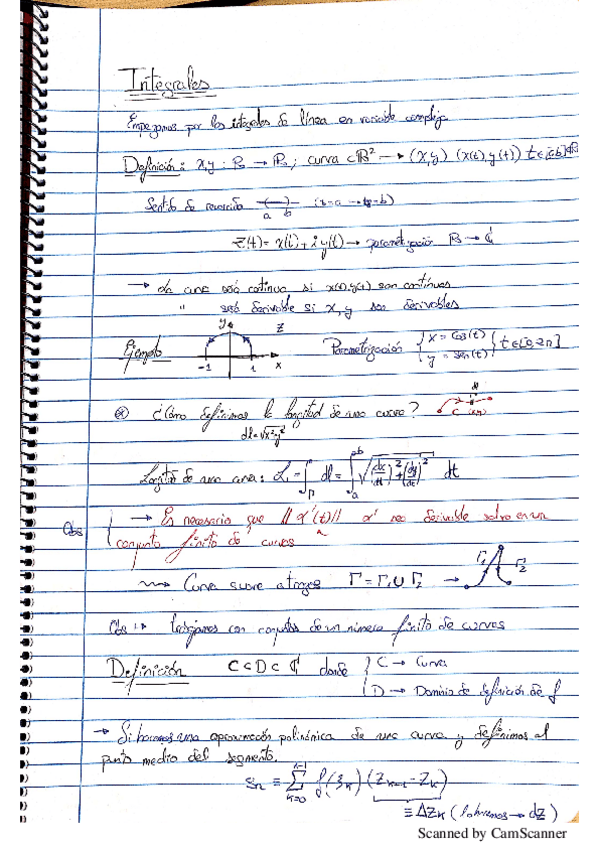 Integrales
Empezamos por las integrales de línea en variable compleja
Definición: x, y : R → R; curva ⊂ R² → (x, y) (x(t), y(t)) t ∈ [a, b]
Sentido de recorrido
a b
z(t) = x(t) + i y(t) → parametrización R → C
→ La curva será continua si x(t), y(t) son continuas
" será derivable si x, y son derivables
y z
Ejemplo -1 1 x Parametrización { x = cos(t) y = sen(t) } t ∈ [0, 2π]
¿Cómo definimos la longitud de una curva?
Longitud de una curva: L = ∫ dl = ∫ₐᵇ √((dx/dt)² + (dy/dt)²) dt
Obs → Es necesario que ||α'(t)|| α' sea derivable salvo en un
conjunto finito de curvas
Curva suave a trozos Γ = Γ₁ ∪ Γ₂ → Γ₁ Γ₂
Obs trabajamos con conjuntos de un número finito de curvas
Definición C ⊂ D ⊂ C donde { C → Curva
D → Dominio de definición de f
→ Si hacemos una aproximación de una curva y definimos al
punto medio del segmento.
Sₙ = Σ f(ξₖ) (zₖ₊₁ - zₖ)
≡ Δzₖ ( → dz)
Scanned by CamScanner